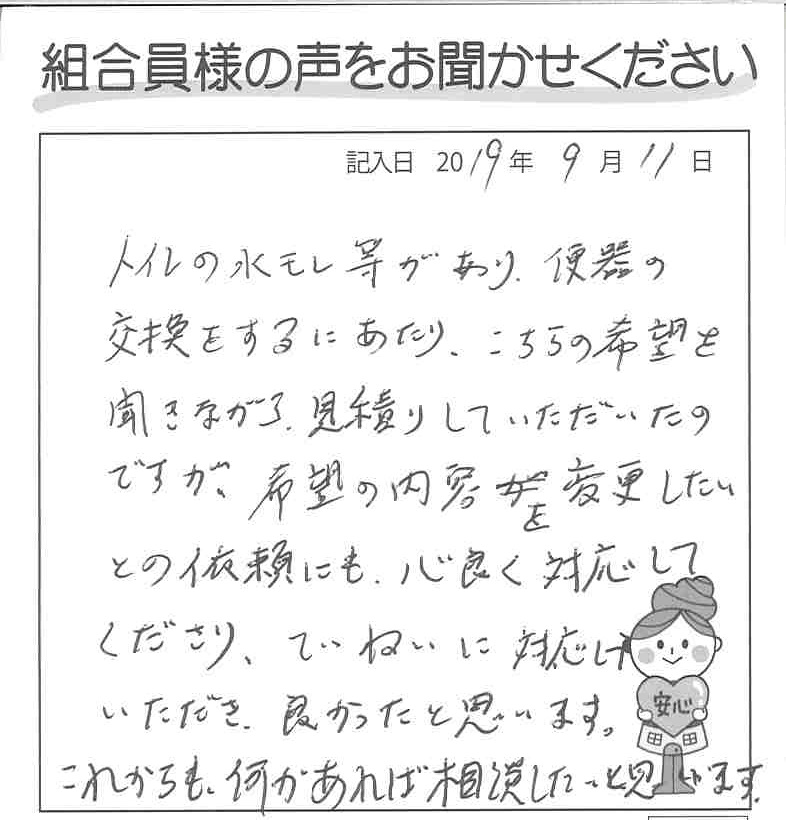 組合員様の声をお聞かせください
記入日 2019年 9月 11日
トイレの水モレ等があり、便器の
交換をするにあたり、こちらの希望を
聞きながら、見積りしていただいたの
ですが、希望の内容を変更したい
との依頼にも、心良く対応して
くださり、ていねいに対応して
いただき、良かったと思います。
これからも、何かあれば相談したいと思います。
安心